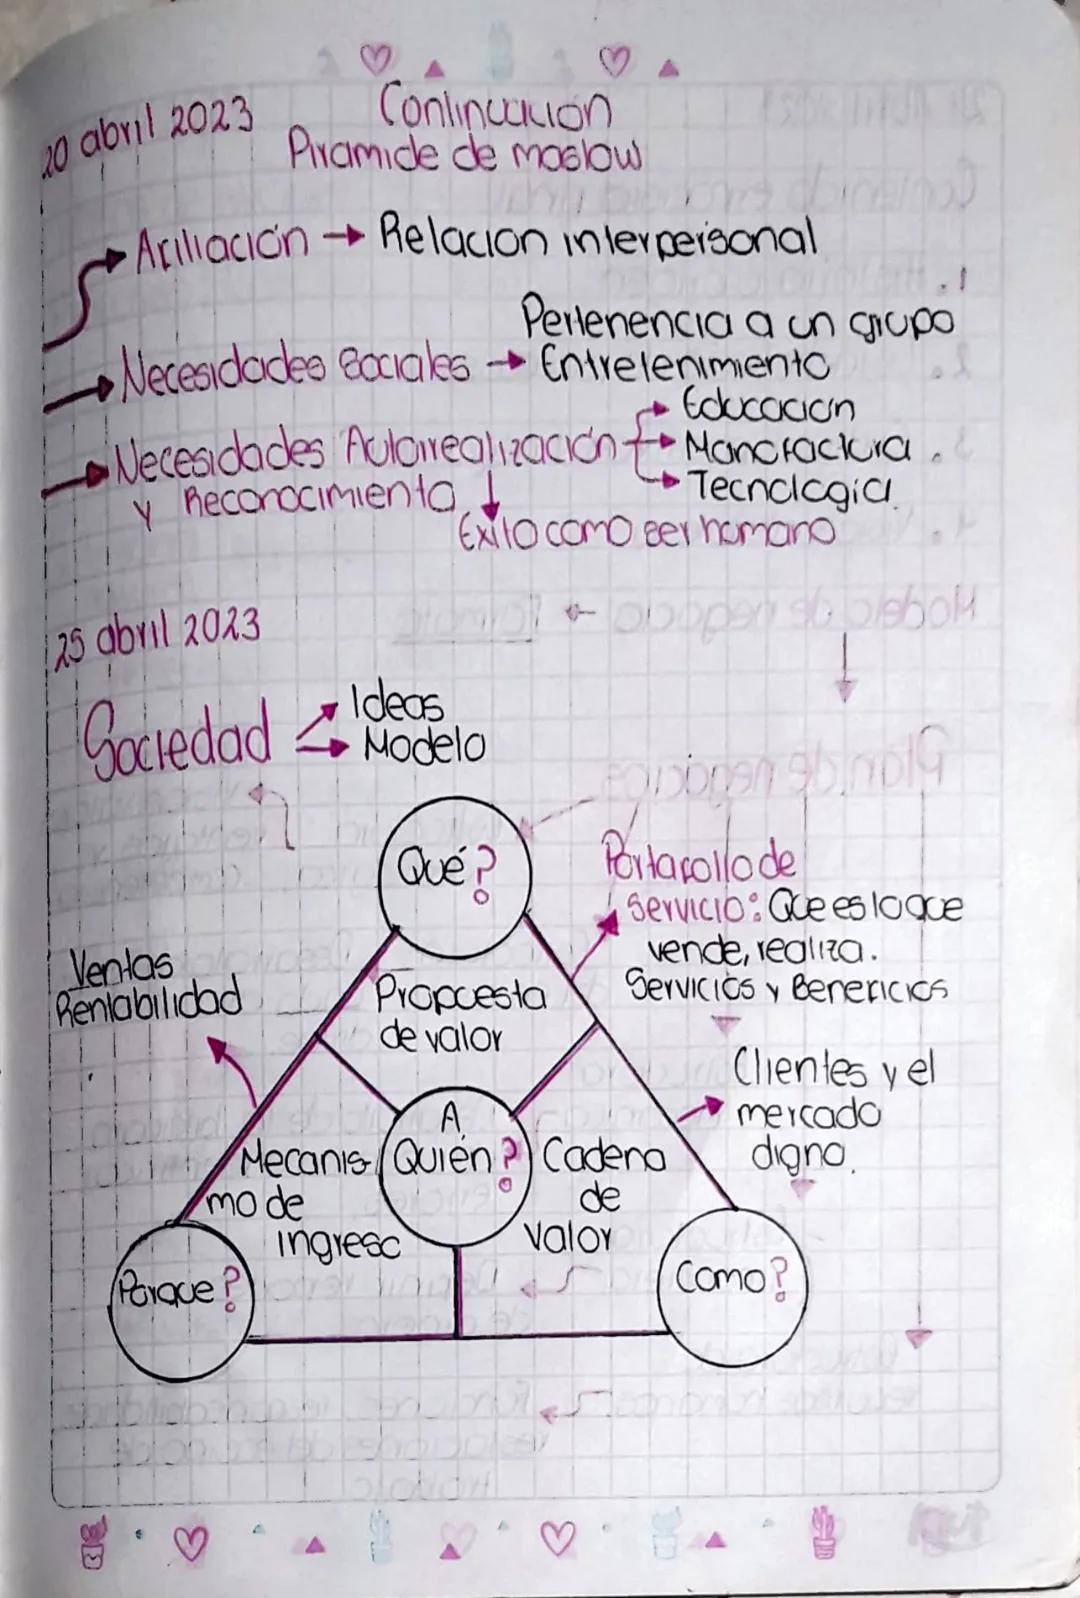 20 abril 2023
Continuación
Piramide de maslow
Afiliación → Relacion interpersonal
Pertenencia a un grupo
Necesidades Sociales → Entretenimiento
Necesidades Autorrealización
y Reconocimiento
Educacion
Manofactura
Tecnologia
Exito como ser humano
25 abril 2023
Sociedad
Ideas
Modelo
Qué?
Portafollo de
Servicio: Que es lo que
vende, realiza.
Servicios y Beneficios
Ventas
Rentabilidad
Propuesta
de valor
Clientes y el
mercado
digno.
A
Quién?
Mecanis
mo de
ingreso
Cadena
de
valor
Porque?
Como?